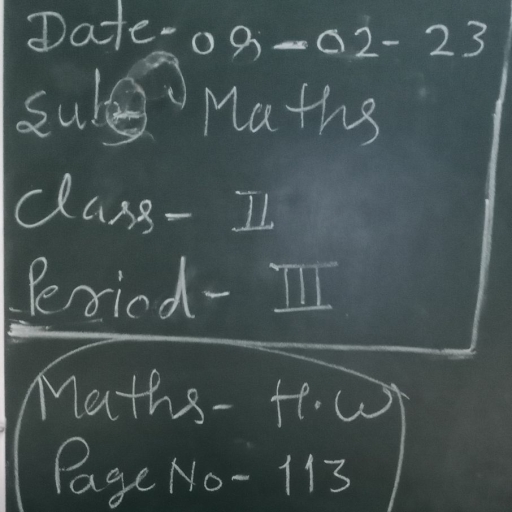 Date- 09-02-23
Sub- Maths
Class- II
Period- III
Maths- H.W
Page No- 113